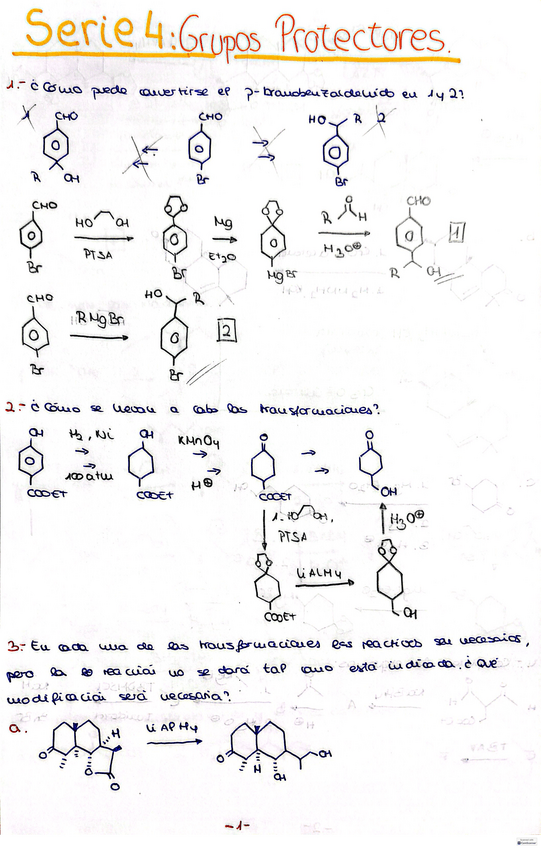 Serie 4: Grupos Protectores.
1.- ¿Cómo puede convertirse el p-bromobenzaldehído en 1 y 2?
1 CHO CHO HO R 2
R OH Br Br
CHO HO OH O O Mg O O R O H CHO
PTSA Et2O H3O⊕ 1
Br Br MgBr R OH
CHO RMgBr HO R
2
Br Br
2.- ¿Cómo se llevan a cabo las transformaciones?
OH H2, Ni OH KMnO4 O O
100 atm H⊕
COOET COOET COOET OH
1. HO OH, H3O⊕
PTSA
O O LiAlH4 O O
COOET OH
3.- En cada una de las transformaciones los reactivos son necesarios,
pero la reacción no se dará tal como está indicada. ¿Qué
modificación será necesaria?
a. H LiAlH4 OH
O O O O H OH
-1-